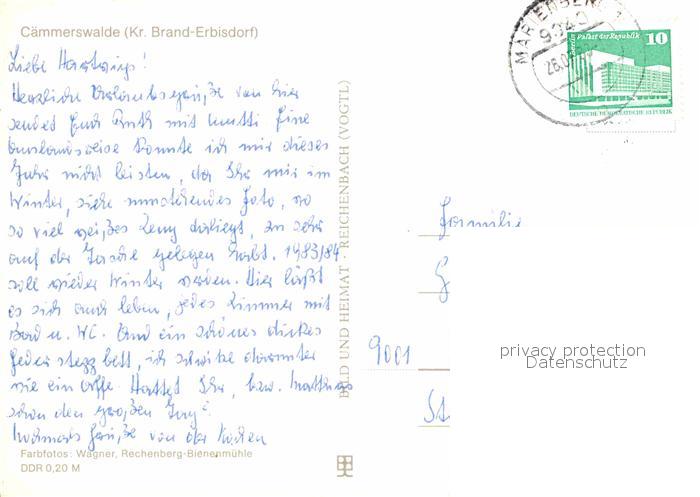 Cämmerswalde (Kr. Brand-Erbisdorf)
Liebe Hartwigs!
Herzliche Urlaubsgrüße von hier
sendet Euch Ruth mit Mutti Eine
Auslandsreise konnte ich mir dieses
Jahr nicht leisten, da Ihr mir im
Winter, siehe umstehendes Foto, wo
so viel weißes Zeug daliegt, zu sehr
auf der Tasche gelegen habt. 1983/84
soll wieder Winter werden. Hier läßt
es sich auch leben, jedes Zimmer mit
Bad u. WC. Und ein schönes dickes
Federbett, ich schwitze darunter
wie ein Affe. Hattet Ihr, bzw. Matthias
schon den großen Zug?
Nochmals Grüße von der
Farbfotos: Wagner, Rechenberg-Bienenmühle
DDR 0,20 M
BILD UND HEIMAT · REICHENBACH (VOGTL)
MARIENBERG 1
9340
Berlin Palast der Republik 10
DEUTSCHE DEMOKRATISCHE REPUBLIK
Familie
G
9001
St
privacy protection
Datenschutz